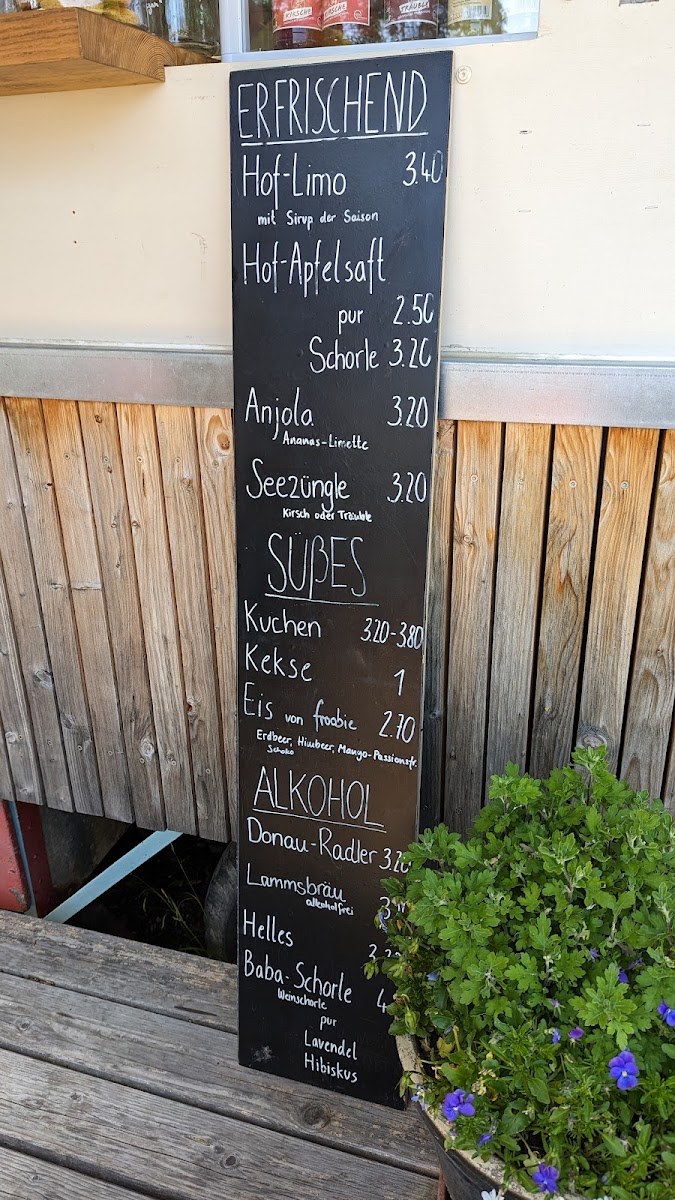 KIRSCHE
KIRSCHE
TRAUBLE
ERFRISCHEND
Hof-Limo 3.40
mit Sirup der Saison
Hof-Apfelsaft
pur 2.50
Schorle 3.20
Anjola 3.20
Ananas-Limette
Seezüngle 3.20
Kirsch oder Träuble
SÜßES
Kuchen 3.20-3.80
Kekse 1
Eis von froobie 2.70
Erdbeer, Himbeer, Mango-Passionsfr.
Schoko
ALKOHOL
Donau-Radler 3.20
Lammsbräu
alkoholfrei
Helles
Baba-Schorle 4
Weinschorle
pur
Lavendel
Hibiskus